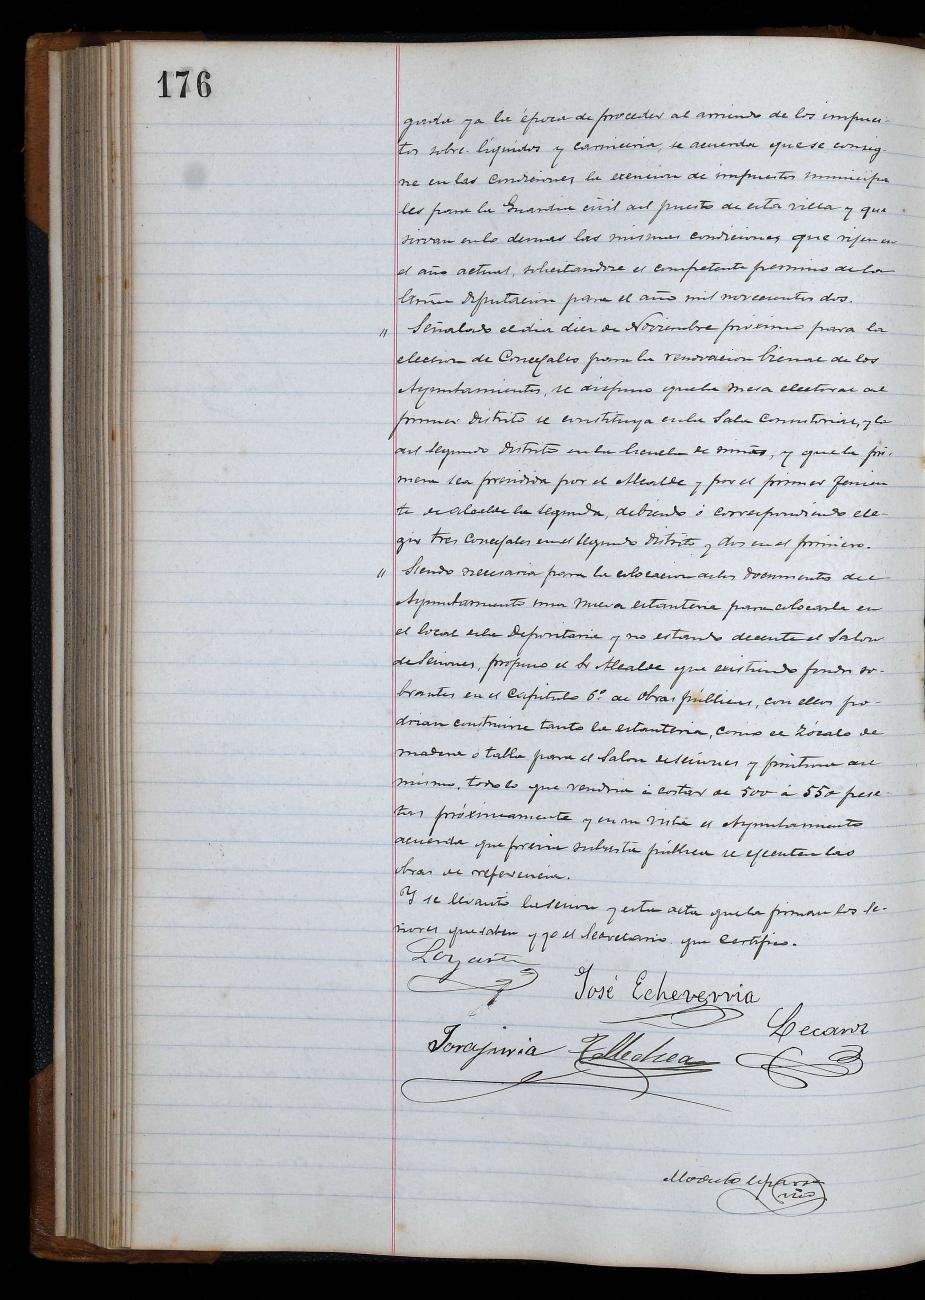 176
gada ya la época de proceder al arriendo de los impues-
tos sobre líquidos y carnicería, se acuerda que se consig-
ne en las condiciones la exencion de impuestos municipa
les para la Guardia civil del puesto de esta villa y que
sirvan en lo demas las mismas condiciones que rijen en
el año actual, solicitandose el competente permiso de la
Excma Diputacion para el año mil novecientos dos.
" Señalado el dia diez de Noviembre próximo para la
eleccion de Concejales para la renovacion bienal de los
Ayuntamientos, se dispuso que la mesa electoral del
primer distrito se constituya en la Sala Consistorial, y la
del segundo distrito en la Escuela de niñas, y que la pri-
mera sea presidida por el Alcalde y por el primer Tenien
te de Alcalde la segunda, debiendo ó correspondiendo ele-
gir tres Concejales en el segundo distrito y dos en el primero.
" Siendo necesaria para la colocacion de los documentos del
Ayuntamiento una nueva estanteria para colocarla en
el local de la Depositaria y no estando decente el Salon
de Sesiones, propuso el Sr Alcalde que existiendo fondos so-
brantes en el Capítulo 6º de Obras públicas, con ellos po-
drian construirse tanto la estanteria, como el Zócalo de
madera ó talla para el Salon de sesiones y pintura del
mismo, todo lo que vendria á costar de 500 á 550 pese-
tas próximamente y en su vista el Ayuntamiento
acuerda que previa subasta pública se ejecuten las
obras de referencia.
Y se levantó la sesion y esta acta que la firman los Se-
ñores que saben y yo el Secretario que certifico.
José Echeverria
Lecaroz
Modesto